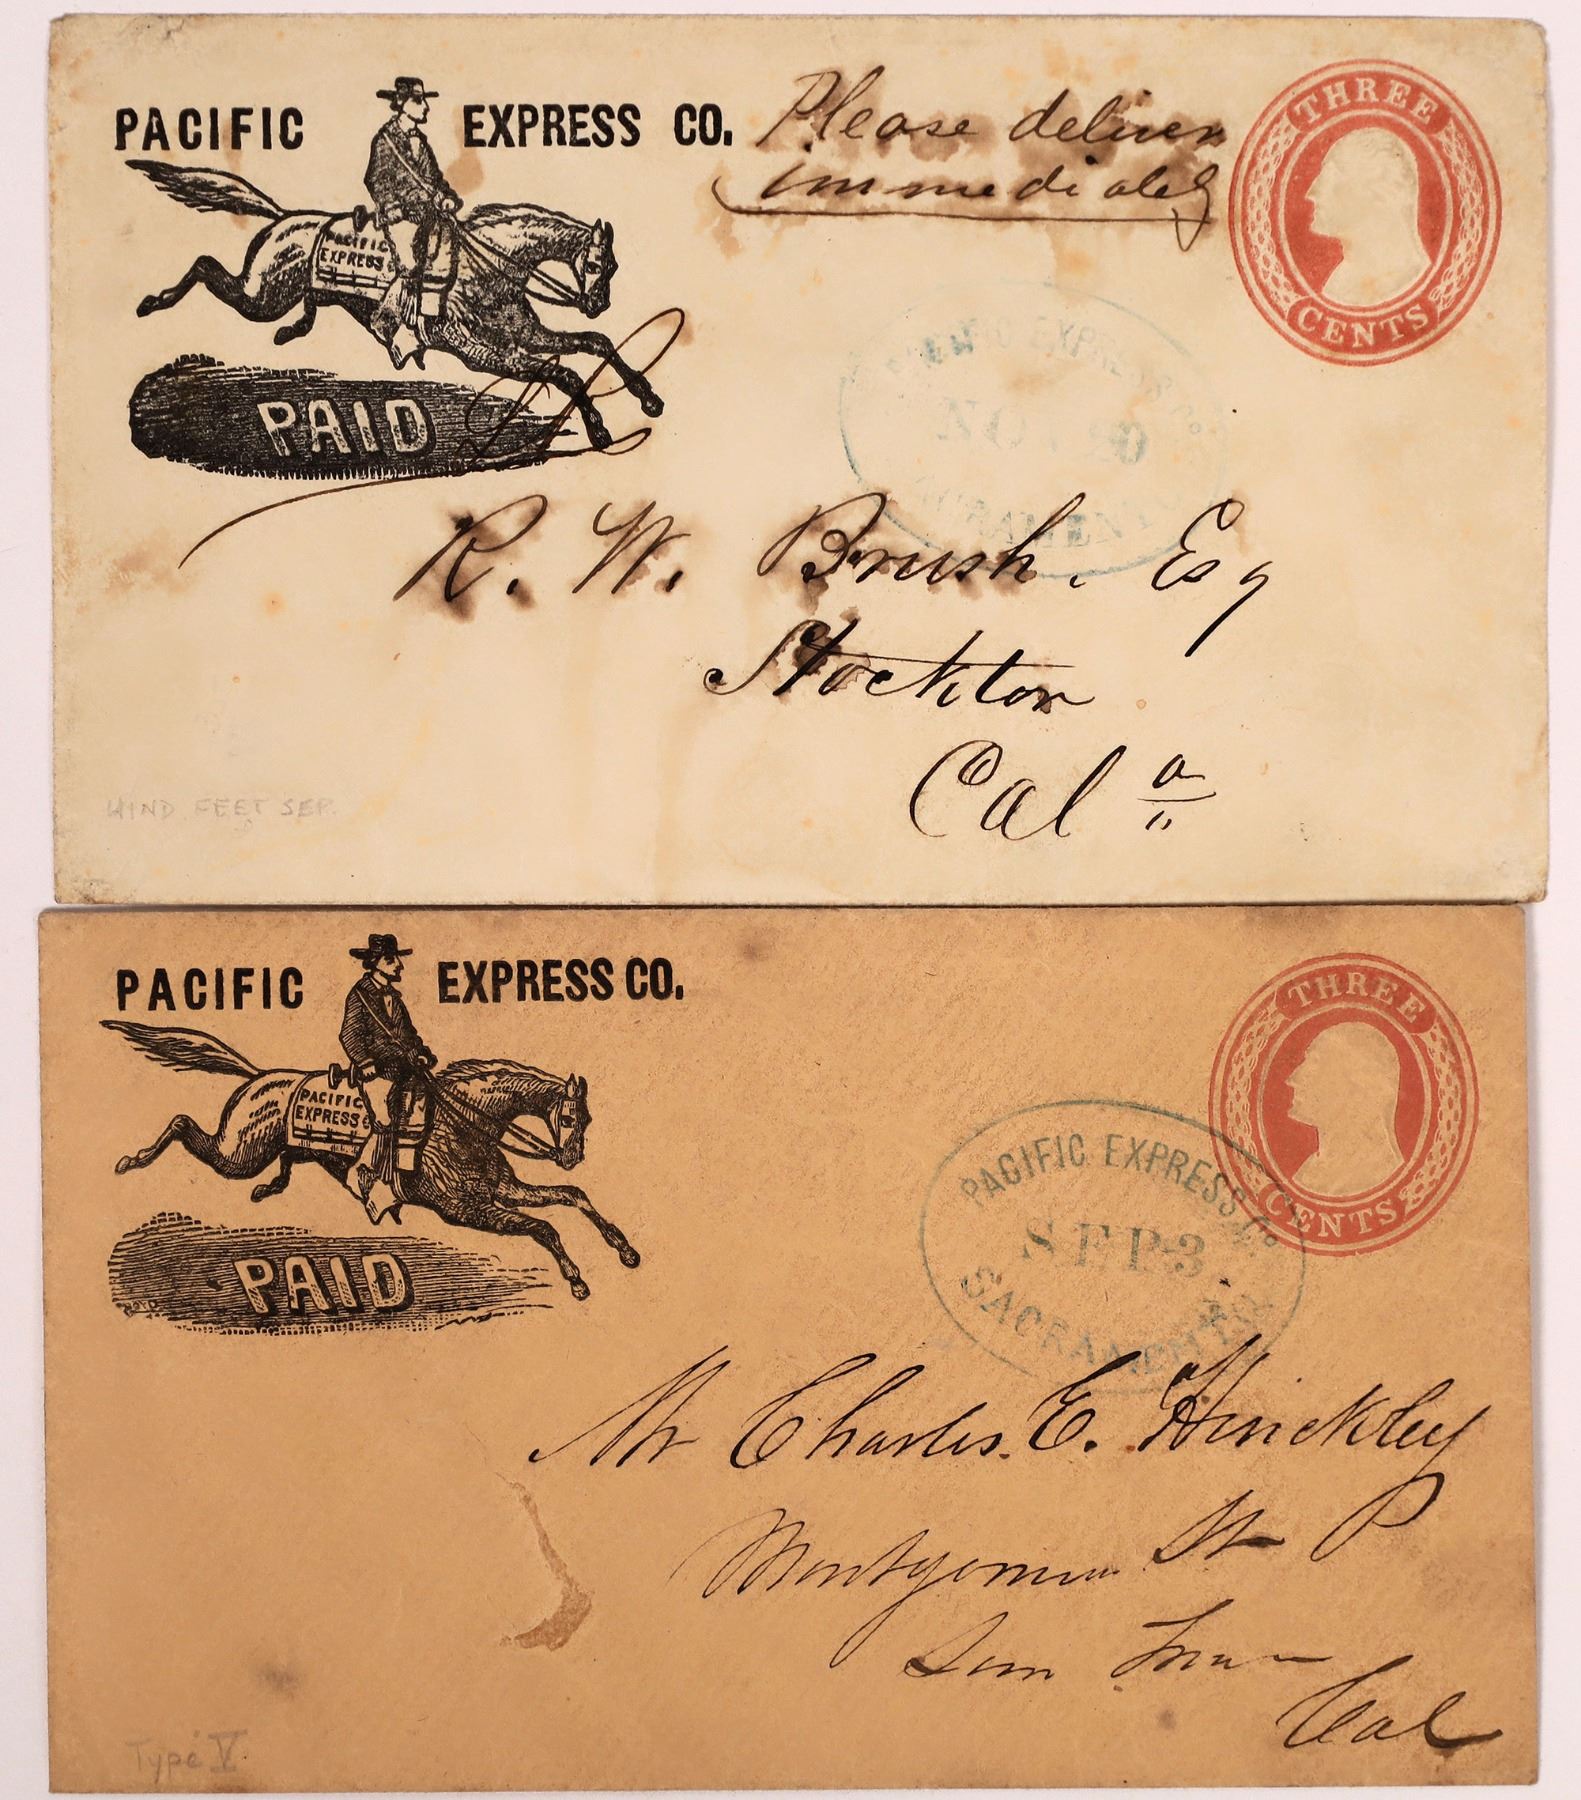 PACIFIC EXPRESS CO.
Please deliver
immediately
THREE
CENTS
PACIFIC
EXPRESS
PAID
PACIFIC EXPRESS Co.
NOV 20
SACRAMENTO
R. W. Brush, Esq
Stockton
Cal a
HIND FEET SEP.
PACIFIC EXPRESS CO.
THREE
CENTS
PACIFIC
EXPRESS Co
PAID
PACIFIC EXPRESS Co.
SEP 3
SACRAMENTO
Mr Charles E. Hinckley
Montgomery St
San Fran
Cal
Type V